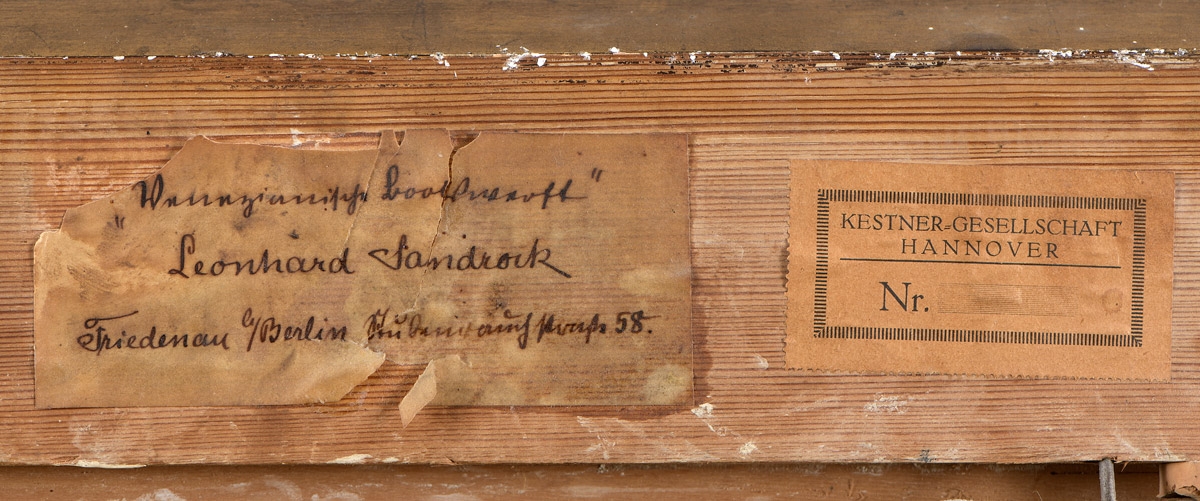 „Venezianische Bootswerft"
Leonhard Sandrock
Friedenau b/Berlin Stubenrauchstraße 58.
KESTNER-GESELLSCHAFT
HANNOVER
Nr.